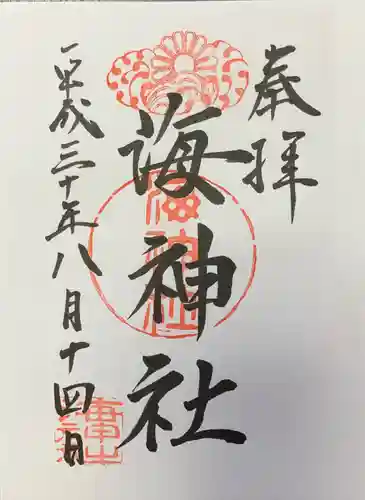 奉拝
海神社
平成三十年八月十四日
海神社